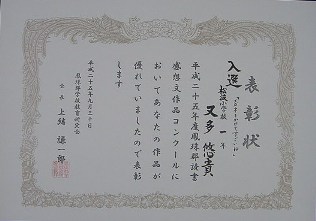 表彰状
入選
松波小学校 一年
又多 悠貴
平成二十五年度鳳珠郡読書
感想文作品コンクールに
おいてあなたの作品が
優れていましたので表彰
します
平成二十五年九月三十日
鳳珠郡学校教育研究会
会長 上緒 謙一郎